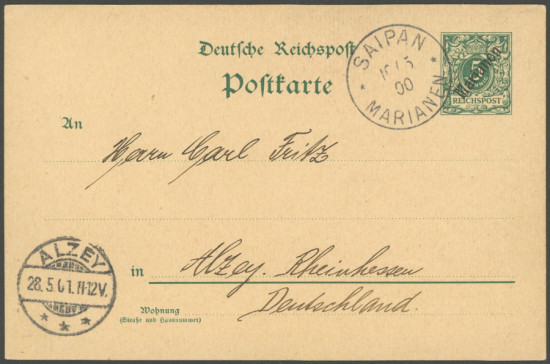 Deutsche Reichspost
Postkarte
SAIPAN
00
MARIANEN
5
Marianen
REICHSPOST
An
Herrn Carl Fritz
ALZEY
28.5.01.11-12V.
in Alzey. Rheinhessen
Deutschland.
Wohnung
(Straße und Hausnummer)